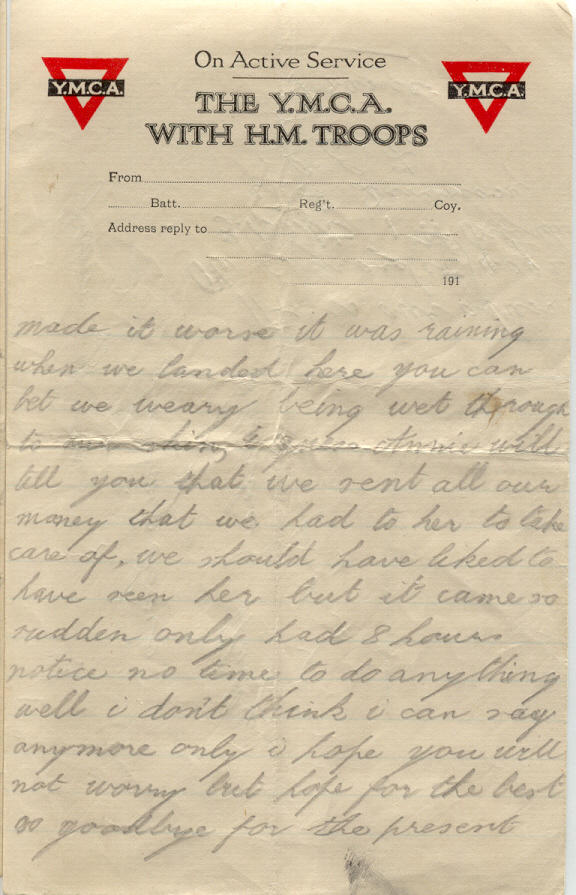 Y.M.C.A.
On Active Service
Y.M.C.A.
THE Y.M.C.A.
WITH H.M. TROOPS
From
Batt. Reg't. Coy.
Address reply to
191
made it worse it was raining
when we landed here you can
bet we weary being wet through
to our skins Annie will
tell you that we sent all our
money that we had to her to take
care of, we should have liked to
have seen her but it came so
sudden only had 8 hours
notice no time to do anything
well i don't think i can say
anymore only i hope you will
not worry but hope for the best
so goodbye for the present